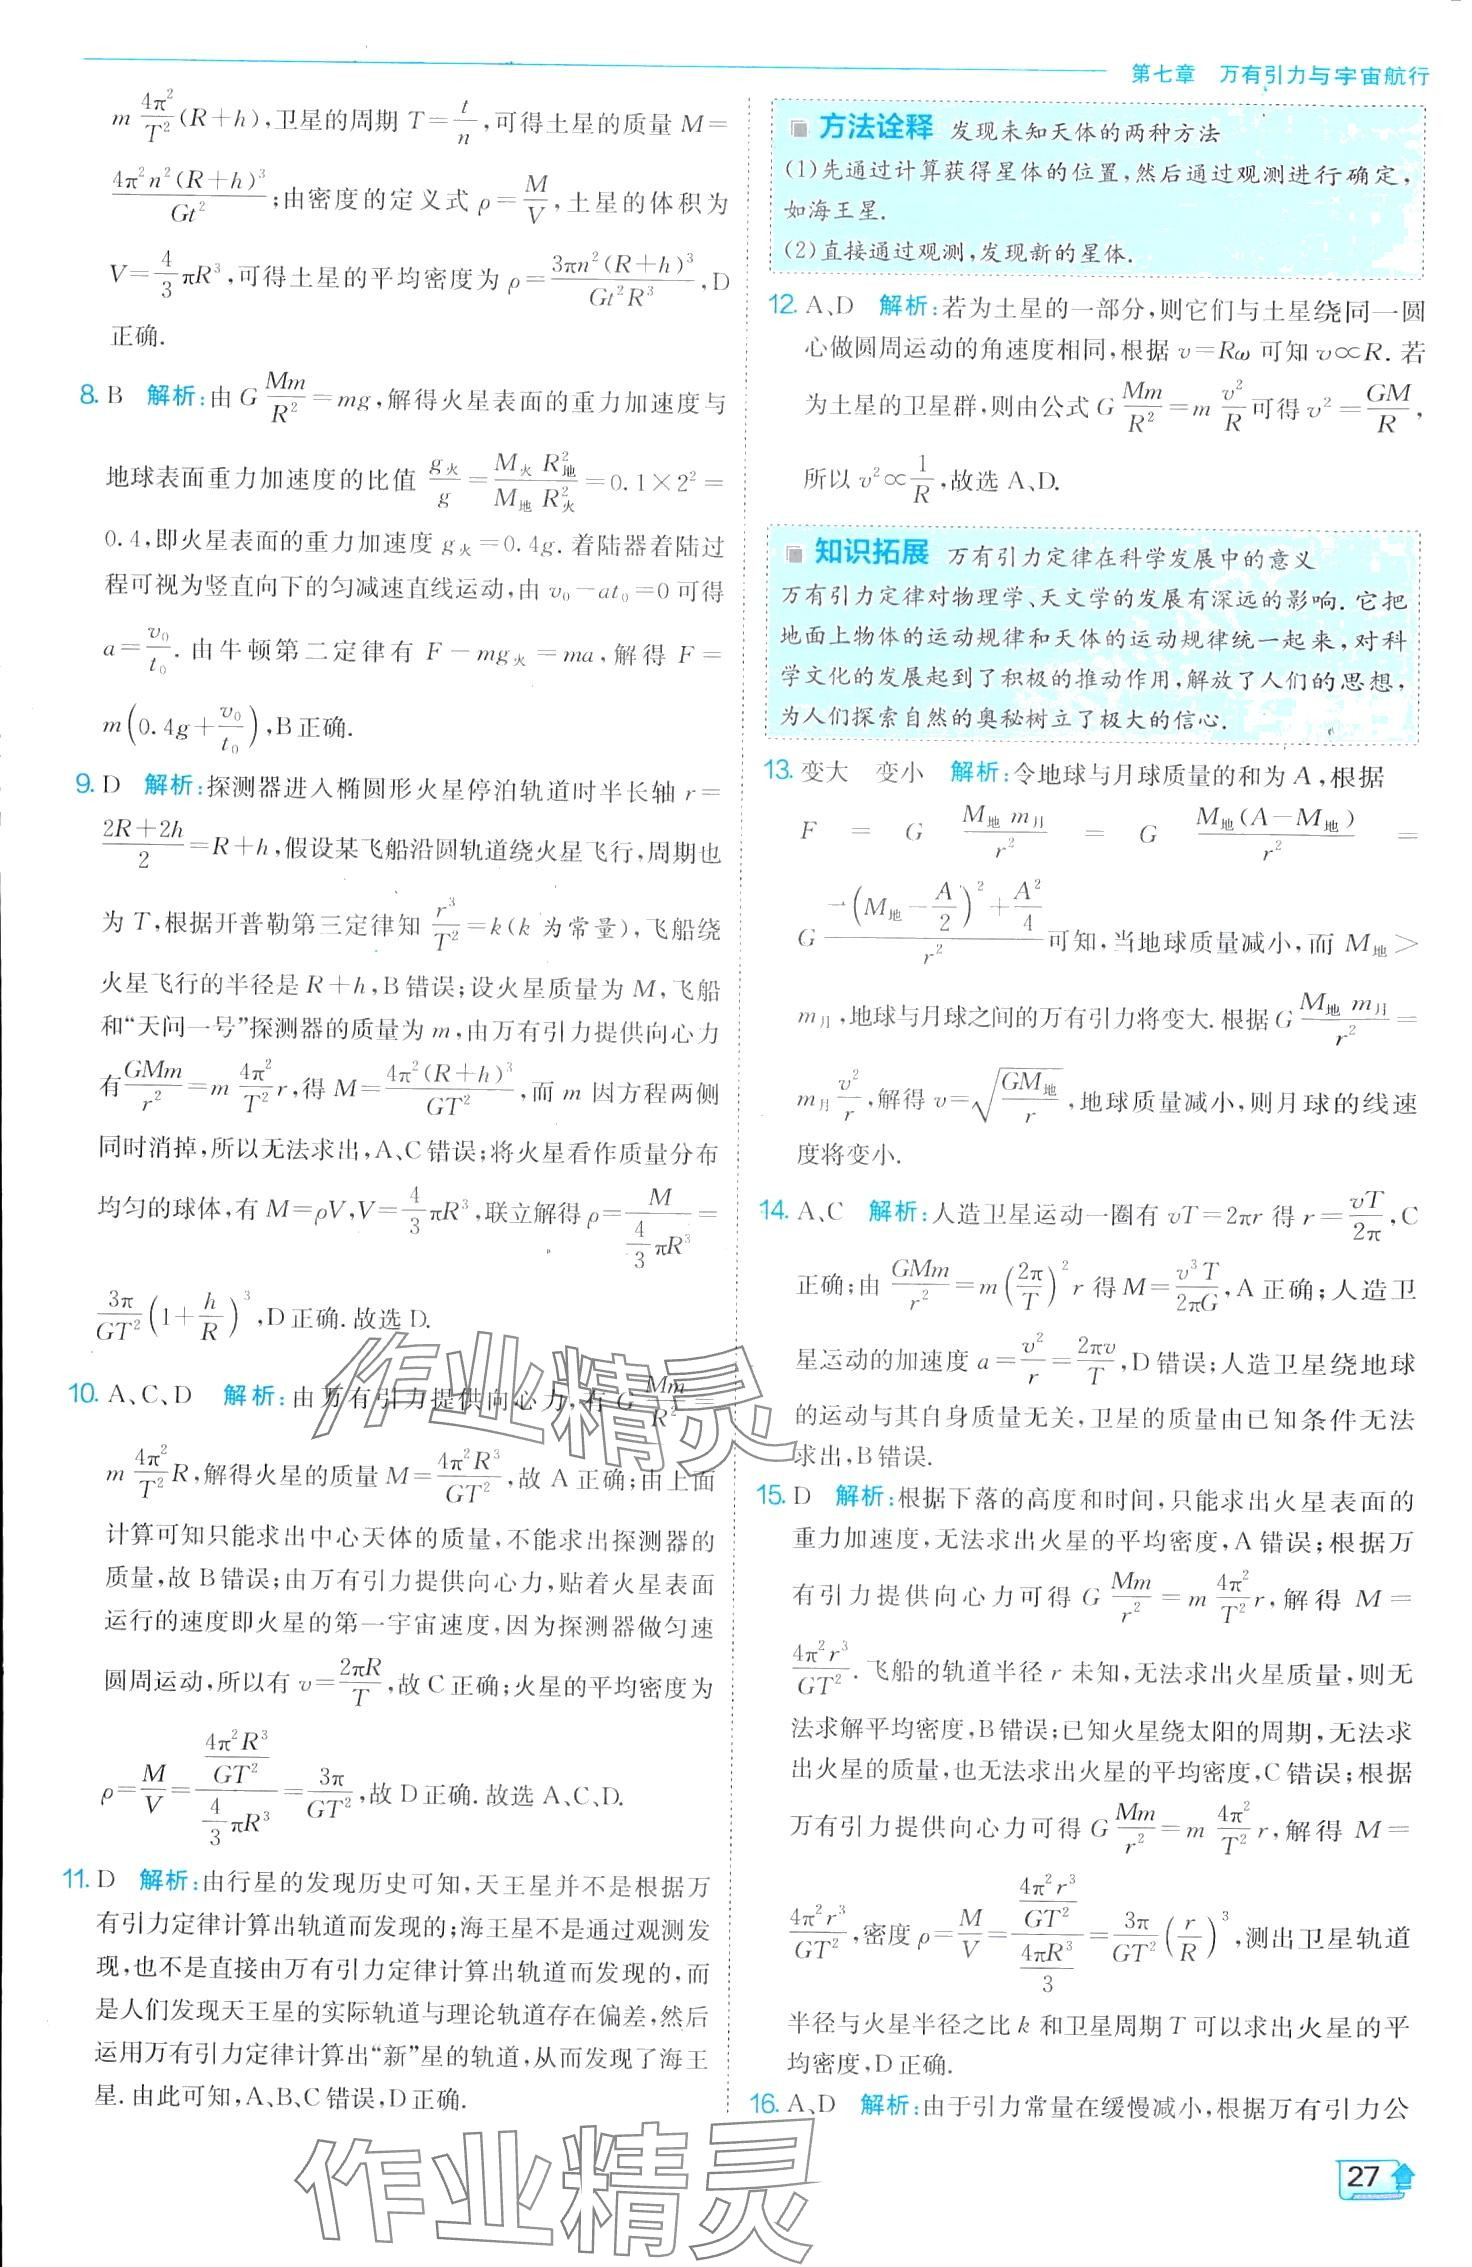 第七章 万有引力与宇宙航行
m 4π²/T² (R+h),卫星的周期 T=t/n,可得土星的质量 M=
4π²n²(R+h)³/Gt²;由密度的定义式 ρ=M/V,土星的体积为
V=4/3 πR³,可得土星的平均密度为 ρ=3πn²(R+h)³/Gt²R³,D
正确.
8. B 解析:由 G Mm/R²=mg,解得火星表面的重力加速度与
地球表面重力加速度的比值 g火/g=M火 R地²/M地 R火²=0.1×2²=
0.4,即火星表面的重力加速度 g火=0.4g.着陆器着陆过
程可视为竖直向下的匀减速直线运动,由 v₀-at₀=0 可得
a=v₀/t₀.由牛顿第二定律有 F-mg火=ma,解得 F=
m(0.4g+v₀/t₀),B 正确.
9. D 解析:探测器进入椭圆形火星停泊轨道时半长轴 r=
(2R+2h)/2=R+h,假设某飞船沿圆轨道绕火星飞行,周期也
为 T,根据开普勒第三定律知 r³/T²=k(k 为常量),飞船绕
火星飞行的半径是 R+h,B 错误;设火星质量为 M,飞船
和“天问一号”探测器的质量为 m,由万有引力提供向心力
有GMm/r²=m 4π²/T² r,得 M=4π²(R+h)³/GT²,而 m 因方程两侧
同时消掉,所以无法求出,A、C 错误;将火星看作质量分布
均匀的球体,有 M=ρV,V=4/3 πR³,联立解得 ρ=M/(4/3 πR³)=
3π/GT² (1+h/R)³,D 正确.故选 D.
10. A、C、D 解析:由万有引力提供向心力,有 G Mm/R²=
m 4π²/T² R,解得火星的质量 M=4π²R³/GT²,故 A 正确;由上面
计算可知只能求出中心天体的质量,不能求出探测器的
质量,故 B 错误;由万有引力提供向心力,贴着火星表面
运行的速度即火星的第一宇宙速度,因为探测器做匀速
圆周运动,所以有 v=2πR/T,故 C 正确;火星的平均密度为
ρ=M/V=(4π²R³/GT²)/(4/3 πR³)=3π/GT²,故 D 正确.故选 A、C、D.
11. D 解析:由行星的发现历史可知,天王星并不是根据万
有引力定律计算出轨道而发现的;海王星不是通过观测发
现,也不是直接由万有引力定律计算出轨道而发现的,而
是人们发现天王星的实际轨道与理论轨道存在偏差,然后
运用万有引力定律计算出“新”星的轨道,从而发现了海王
星.由此可知,A、B、C 错误,D 正确.
方法诠释 发现未知天体的两种方法
(1)先通过计算获得星体的位置,然后通过观测进行确定,
如海王星.
(2)直接通过观测,发现新的星体.
12. A、D 解析:若为土星的一部分,则它们与土星绕同一圆
心做圆周运动的角速度相同,根据 v=Rω 可知 v∝R.若
为土星的卫星群,则由公式 G Mm/R²=m v²/R 可得 v²=GM/R,
所以 v²∝1/R,故选 A、D.
知识拓展 万有引力定律在科学发展中的意义
万有引力定律对物理学、天文学的发展有深远的影响.它把
地面上物体的运动规律和天体的运动规律统一起来,对科
学文化的发展起到了积极的推动作用,解放了人们的思想,
为人们探索自然的奥秘树立了极大的信心.
13. 变大 变小 解析:令地球与月球质量的和为 A,根据
F = G M地 m月/r² = G M地(A-M地)/r² =
G [-(M地-A/2)²+A²/4]/r² 可知,当地球质量减小,而 M地>
m月,地球与月球之间的万有引力将变大.根据 G M地 m月/r²=
m月 v²/r,解得 v=√(GM地/r),地球质量减小,则月球的线速
度将变小.
14. A、C 解析:人造卫星运动一圈有 vT=2πr 得 r=vT/2π,C
正确;由 GMm/r²=m(2π/T)² r 得 M=v³T/2πG,A 正确;人造卫
星运动的加速度 a=v²/r=2πv/T,D 错误;人造卫星绕地球
的运动与其自身质量无关,卫星的质量由已知条件无法
求出,B 错误.
15. D 解析:根据下落的高度和时间,只能求出火星表面的
重力加速度,无法求出火星的平均密度,A 错误;根据万
有引力提供向心力可得 G Mm/r²=m 4π²/T² r,解得 M=
4π²r³/GT².飞船的轨道半径 r 未知,无法求出火星质量,则无
法求解平均密度,B 错误;已知火星绕太阳的周期,无法求
出火星的质量,也无法求出火星的平均密度,C 错误;根据
万有引力提供向心力可得 G Mm/r²=m 4π²/T² r,解得 M=
4π²r³/GT²,密度 ρ=M/V=(4π²r³/GT²)/(4πR³/3)=3π/GT² (r/R)³,测出卫星轨道
半径与火星半径之比 k 和卫星周期 T 可以求出火星的平
均密度,D 正确.
16. A、D 解析:由于引力常量在缓慢减小,根据万有引力公
作业精灵
作业精灵
27